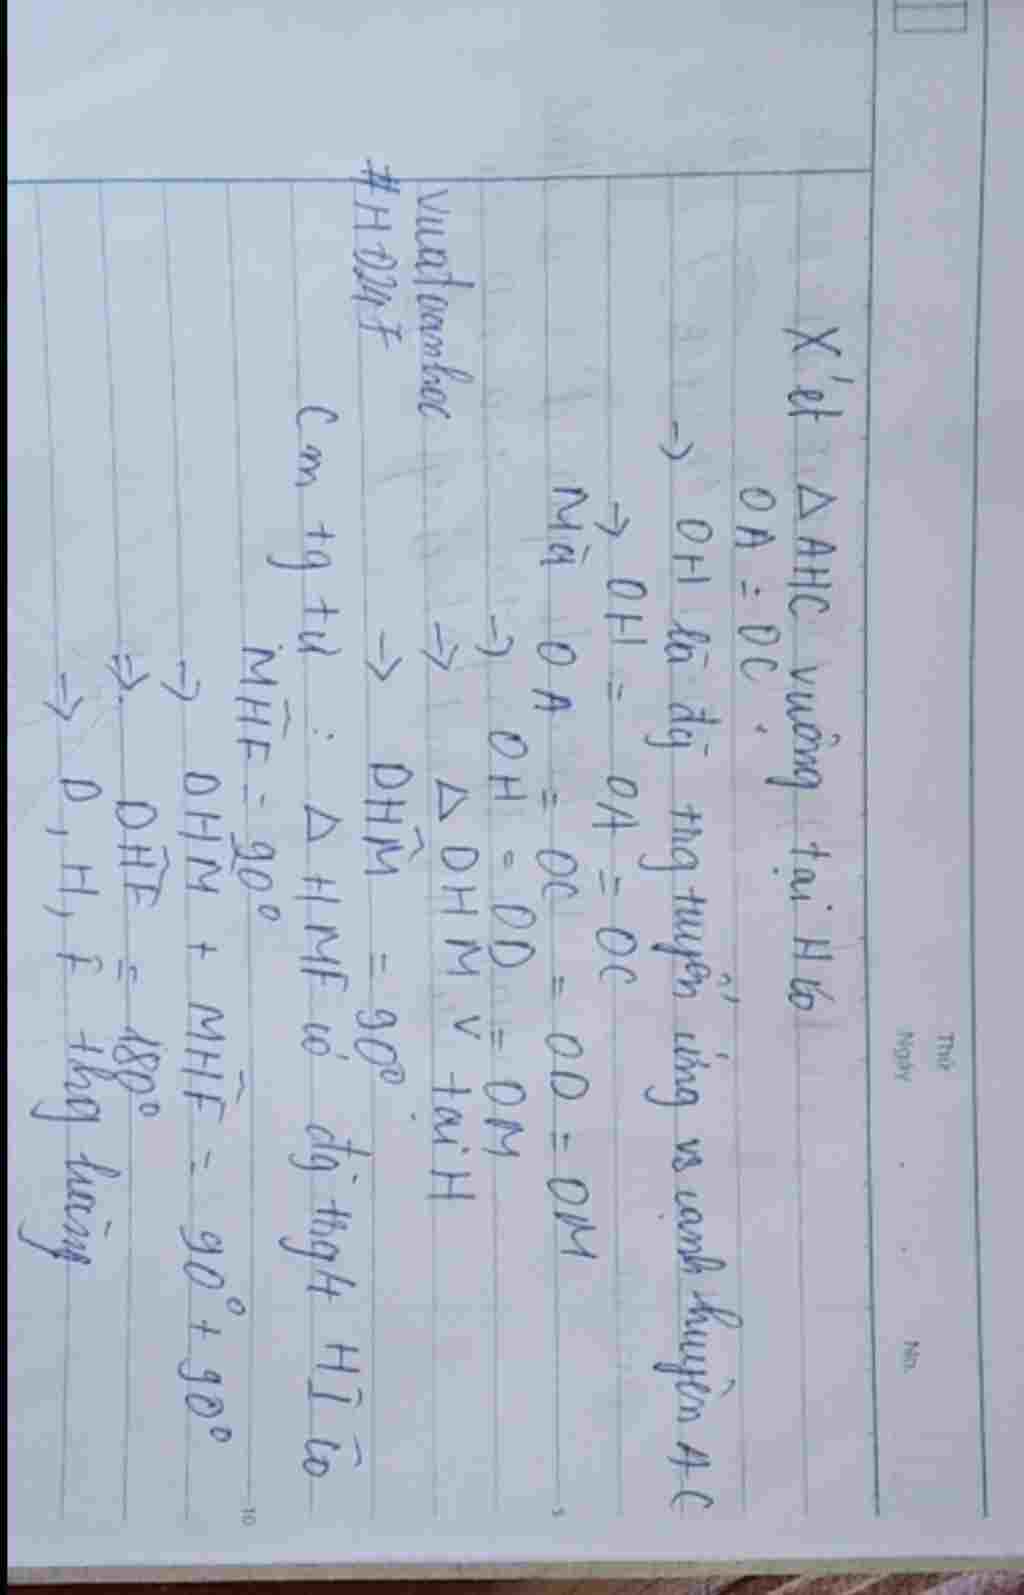 Thứ
Ngày
No.
Xét △AHC vuông tại H có
OA = OC.
→ OH là đg trg tuyến ứng vs cạnh huyền AC
→ OH = OA = OC
Mà OA = OC = OD = OM
5
→ OH = OD = OM
vuatoanhoc
→ △DHM v tại H
#HD247
→ DHM̂ = 90°
Cm tg tự : △HMF có đg thg HI có
MĤF = 90°
10
→ DHM + MĤF = 90° + 90°
⇒ DĤF = 180°
→ D, H, F thg hàng